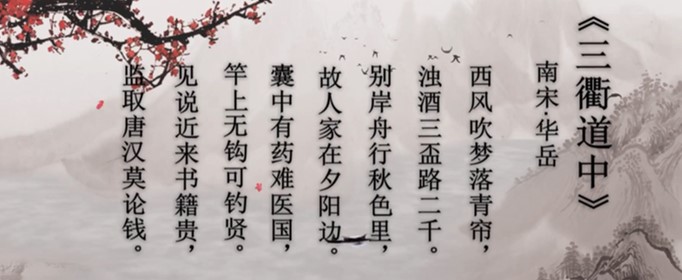 《三衢道中》
南宋·华岳
西风吹梦落青帘，
浊酒三盃路二千。
别岸舟行秋色里，
故人家在夕阳边。
囊中有药难医国，
竿上无钩可钓贤。
见说近来书籍贵，
监取唐汉莫论钱。